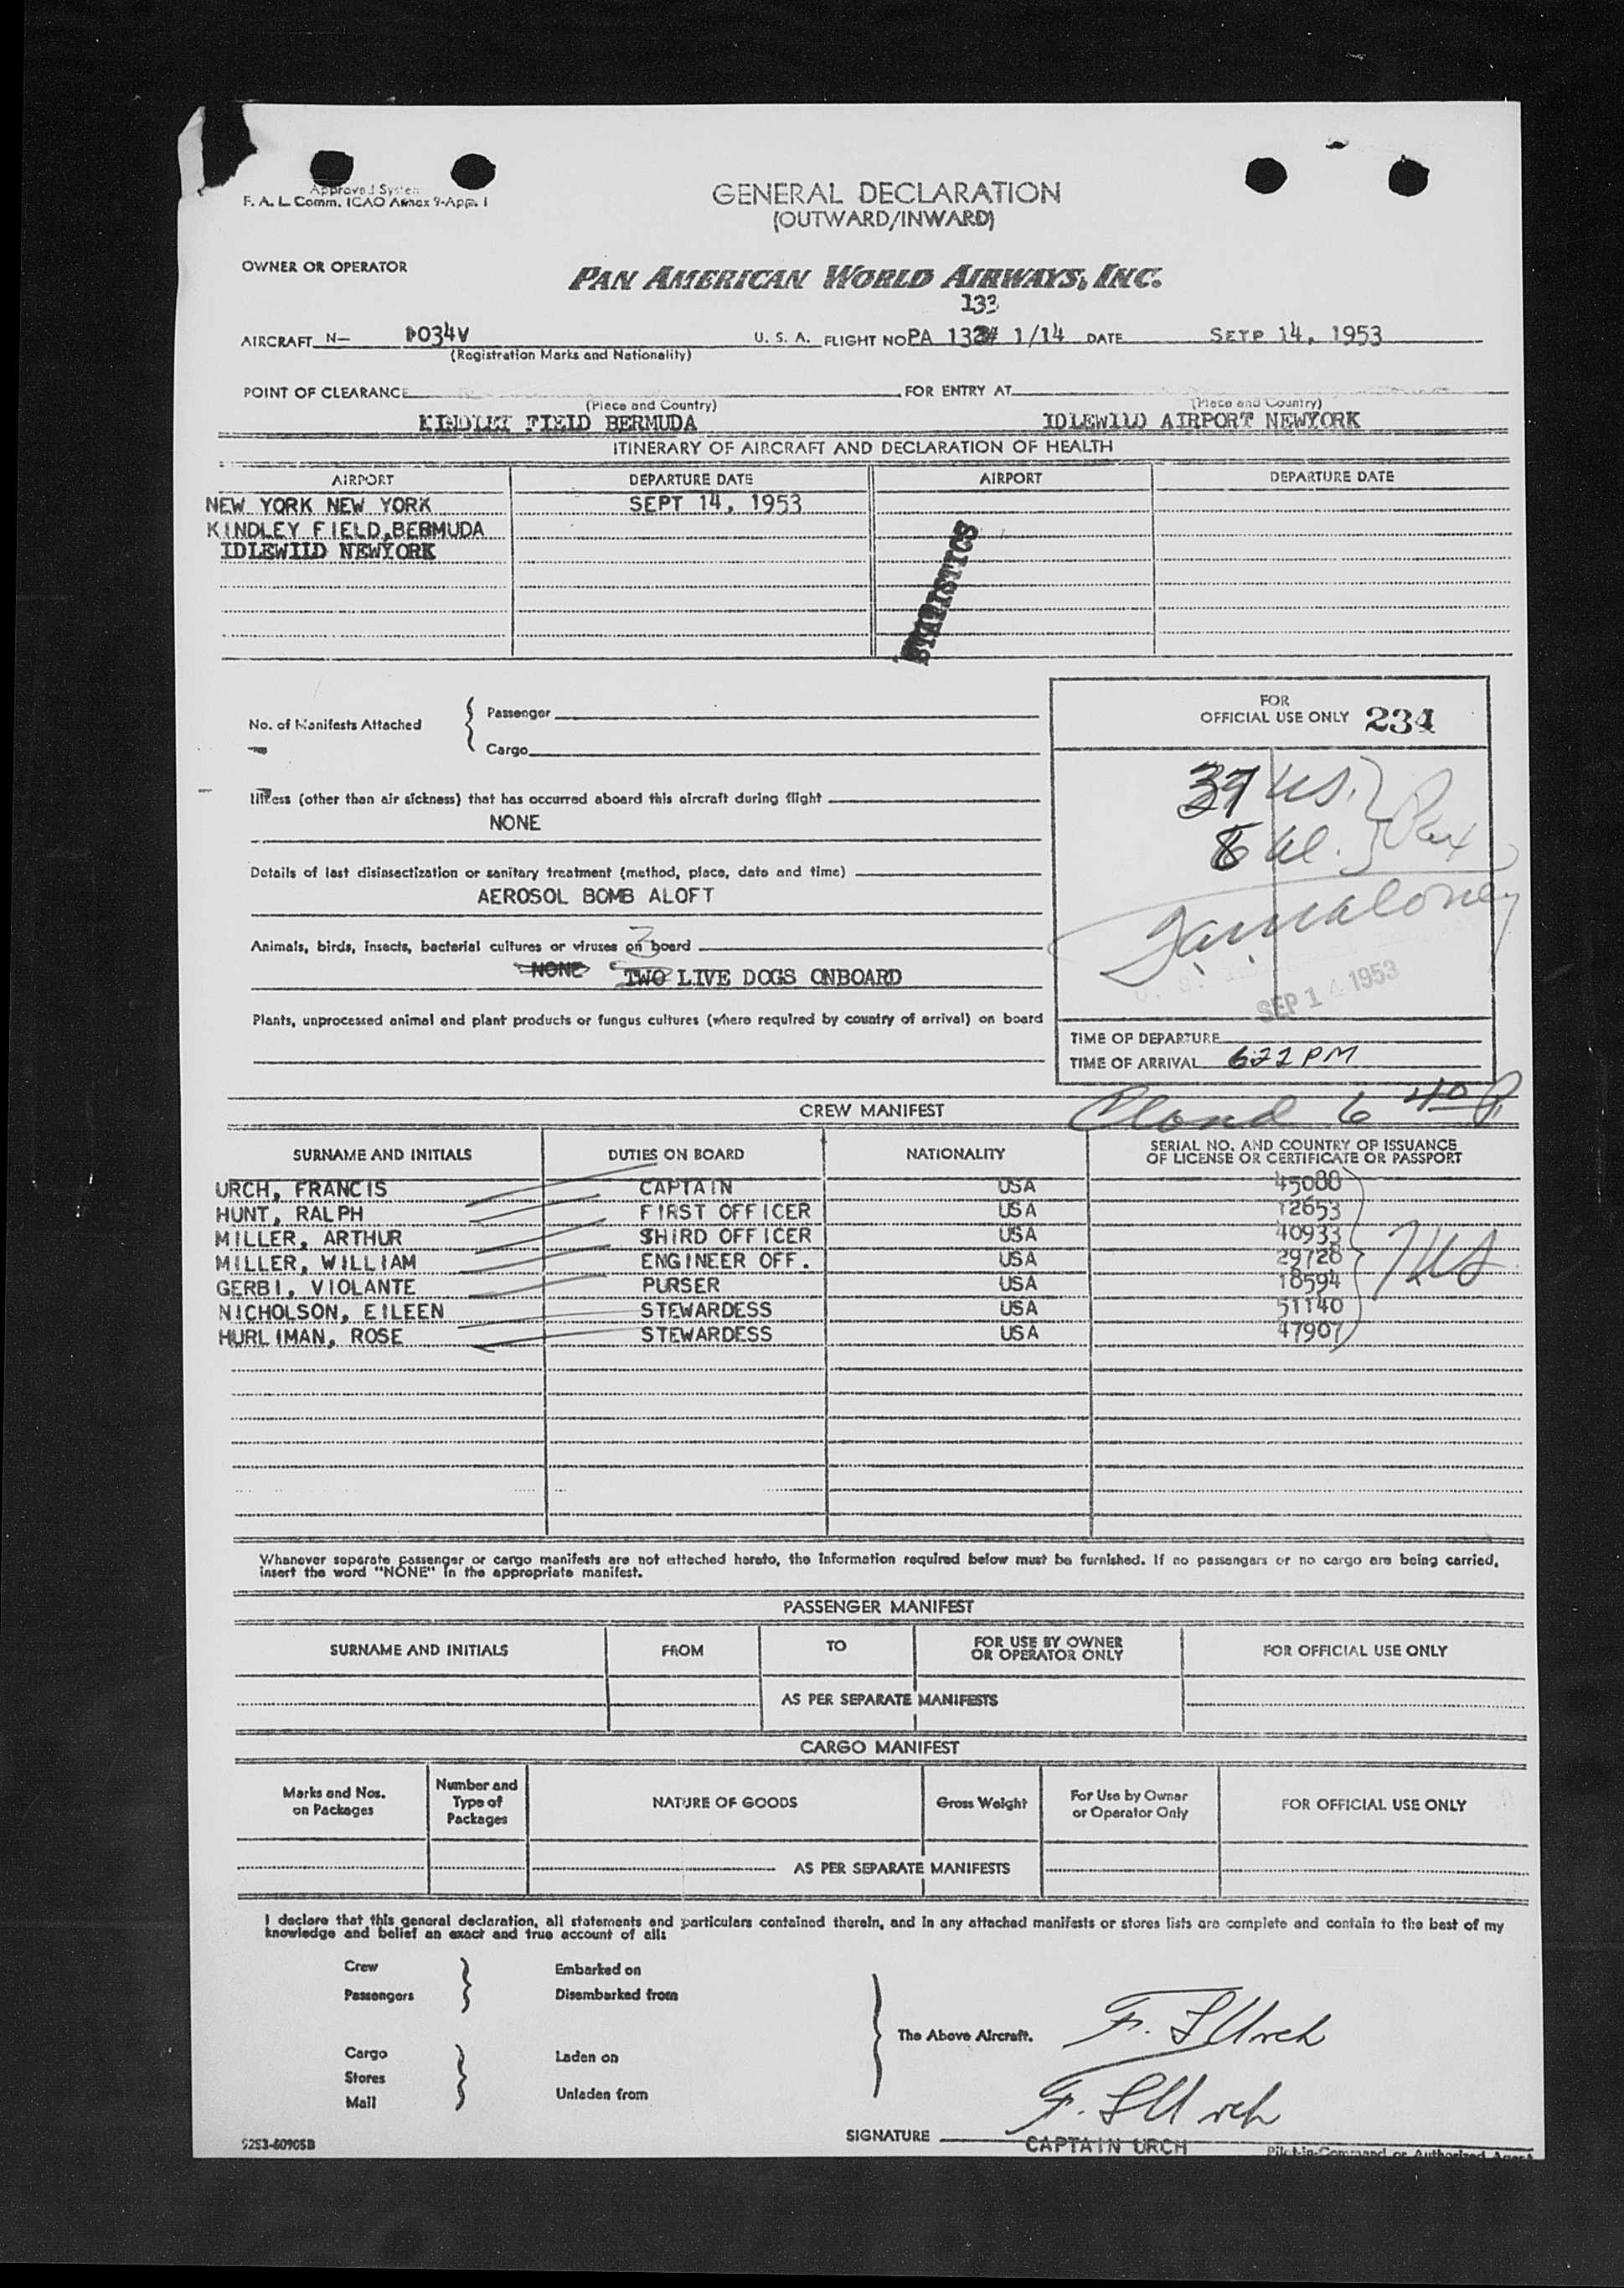 Approved System
F. A. L. Comm. ICAO Annex 9-App. 1
GENERAL DECLARATION
(OUTWARD/INWARD)
OWNER OR OPERATOR
PAN AMERICAN WORLD AIRWAYS, INC.
133
AIRCRAFT N- 1034V U. S. A. FLIGHT NO PA 132# 1/14 DATE SETP 14, 1953
(Registration Marks and Nationality)
POINT OF CLEARANCE FOR ENTRY AT
(Place and Country) (Place and Country)
KINDLEY FIELD BERMUDA IDLEWILD AIRPORT NEWYORK
ITINERARY OF AIRCRAFT AND DECLARATION OF HEALTH
AIRPORT DEPARTURE DATE AIRPORT DEPARTURE DATE
NEW YORK NEW YORK SEPT 14, 1953
KINDLEY FIELD,BERMUDA
IDLEWIID NEWYORK
STATISTICS
FOR
OFFICIAL USE ONLY 234
No. of Manifests Attached { Passenger
Cargo
37 US. } Pax
8 al.
Illness (other than air sickness) that has occurred aboard this aircraft during flight
NONE
Details of last disinsectization or sanitary treatment (method, place, date and time)
AEROSOL BOMB ALOFT
Animals, birds, insects, bacterial cultures or viruses on board
NONE 3 TWO LIVE DOGS ONBOARD
SEP 14 1953
Plants, unprocessed animal and plant products or fungus cultures (where required by country of arrival) on board
TIME OF DEPARTURE
TIME OF ARRIVAL 6:22 PM
6 40 P
CREW MANIFEST
SURNAME AND INITIALS DUTIES ON BOARD NATIONALITY SERIAL NO. AND COUNTRY OF ISSUANCE
OF LICENSE OR CERTIFICATE OR PASSPORT
URCH, FRANCIS CAPTAIN USA 45088
HUNT, RALPH FIRST OFFICER USA 12653
MILLER, ARTHUR SHIRD OFFICER USA 40933
MILLER, WILLIAM ENGINEER OFF. USA 29728
GERBI, VIOLANTE PURSER USA 18594
NICHOLSON, EILEEN STEWARDESS USA 51140
HURLIMAN, ROSE STEWARDESS USA 47907
7 US
Whenever separate passenger or cargo manifests are not attached hereto, the information required below must be furnished. If no passengers or no cargo are being carried,
insert the word "NONE" in the appropriate manifest.
PASSENGER MANIFEST
SURNAME AND INITIALS FROM TO FOR USE BY OWNER
OR OPERATOR ONLY FOR OFFICIAL USE ONLY
AS PER SEPARATE MANIFESTS
CARGO MANIFEST
Marks and Nos.
on Packages Number and
Type of
Packages NATURE OF GOODS Gross Weight For Use by Owner
or Operator Only FOR OFFICIAL USE ONLY
AS PER SEPARATE MANIFESTS
I declare that this general declaration, all statements and particulars contained therein, and in any attached manifests or stores lists are complete and contain to the best of my
knowledge and belief an exact and true account of all:
Crew Embarked on
Passengers Disembarked from
The Above Aircraft. F. S Urch
Cargo Laden on
Stores
Mail Unladen from
F. S Urch
SIGNATURE CAPTAIN URCH Pilot-in-Command or Authorized Agent
9253-6090SB